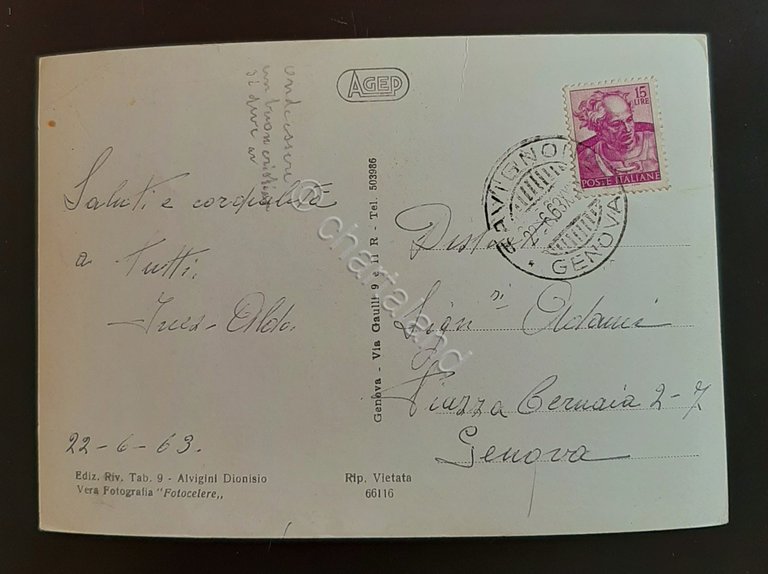 AGEP
15
LIRE
POSTE ITALIANE
22.6.63
GENOVA
Saluti e cordialità
a Tutti.
Ines - Aldo.
22-6-63.
Ediz. Riv. Tab. 9 - Alvigini Dionisio
Vera Fotografia "Fotocelere,,
Genova - Via Gaulli 9 e 11 R - Tel. 503986
Rip. Vietata
66116
Sign.ri Adami
Piazza Cernaia 2-7
Genova
© chartaland